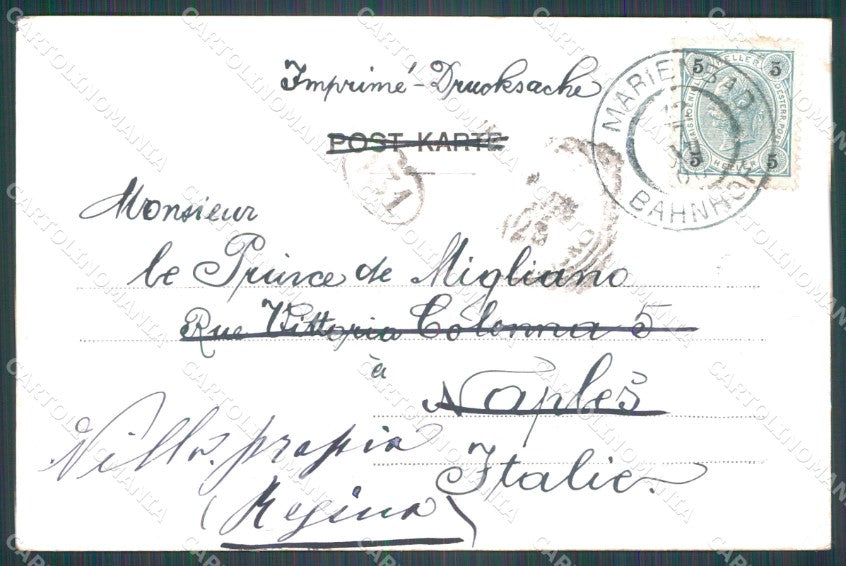 Imprimé - Drucksache
POST KARTE
MARIENBAD
BAHNHOF
5 5
5 5
31
Monsieur
le Prince de Migliano
Rue Vittoria Colonna 5
à
Naples
Italie.
Villa propria
(Resina)
CARTOLINOMANIA